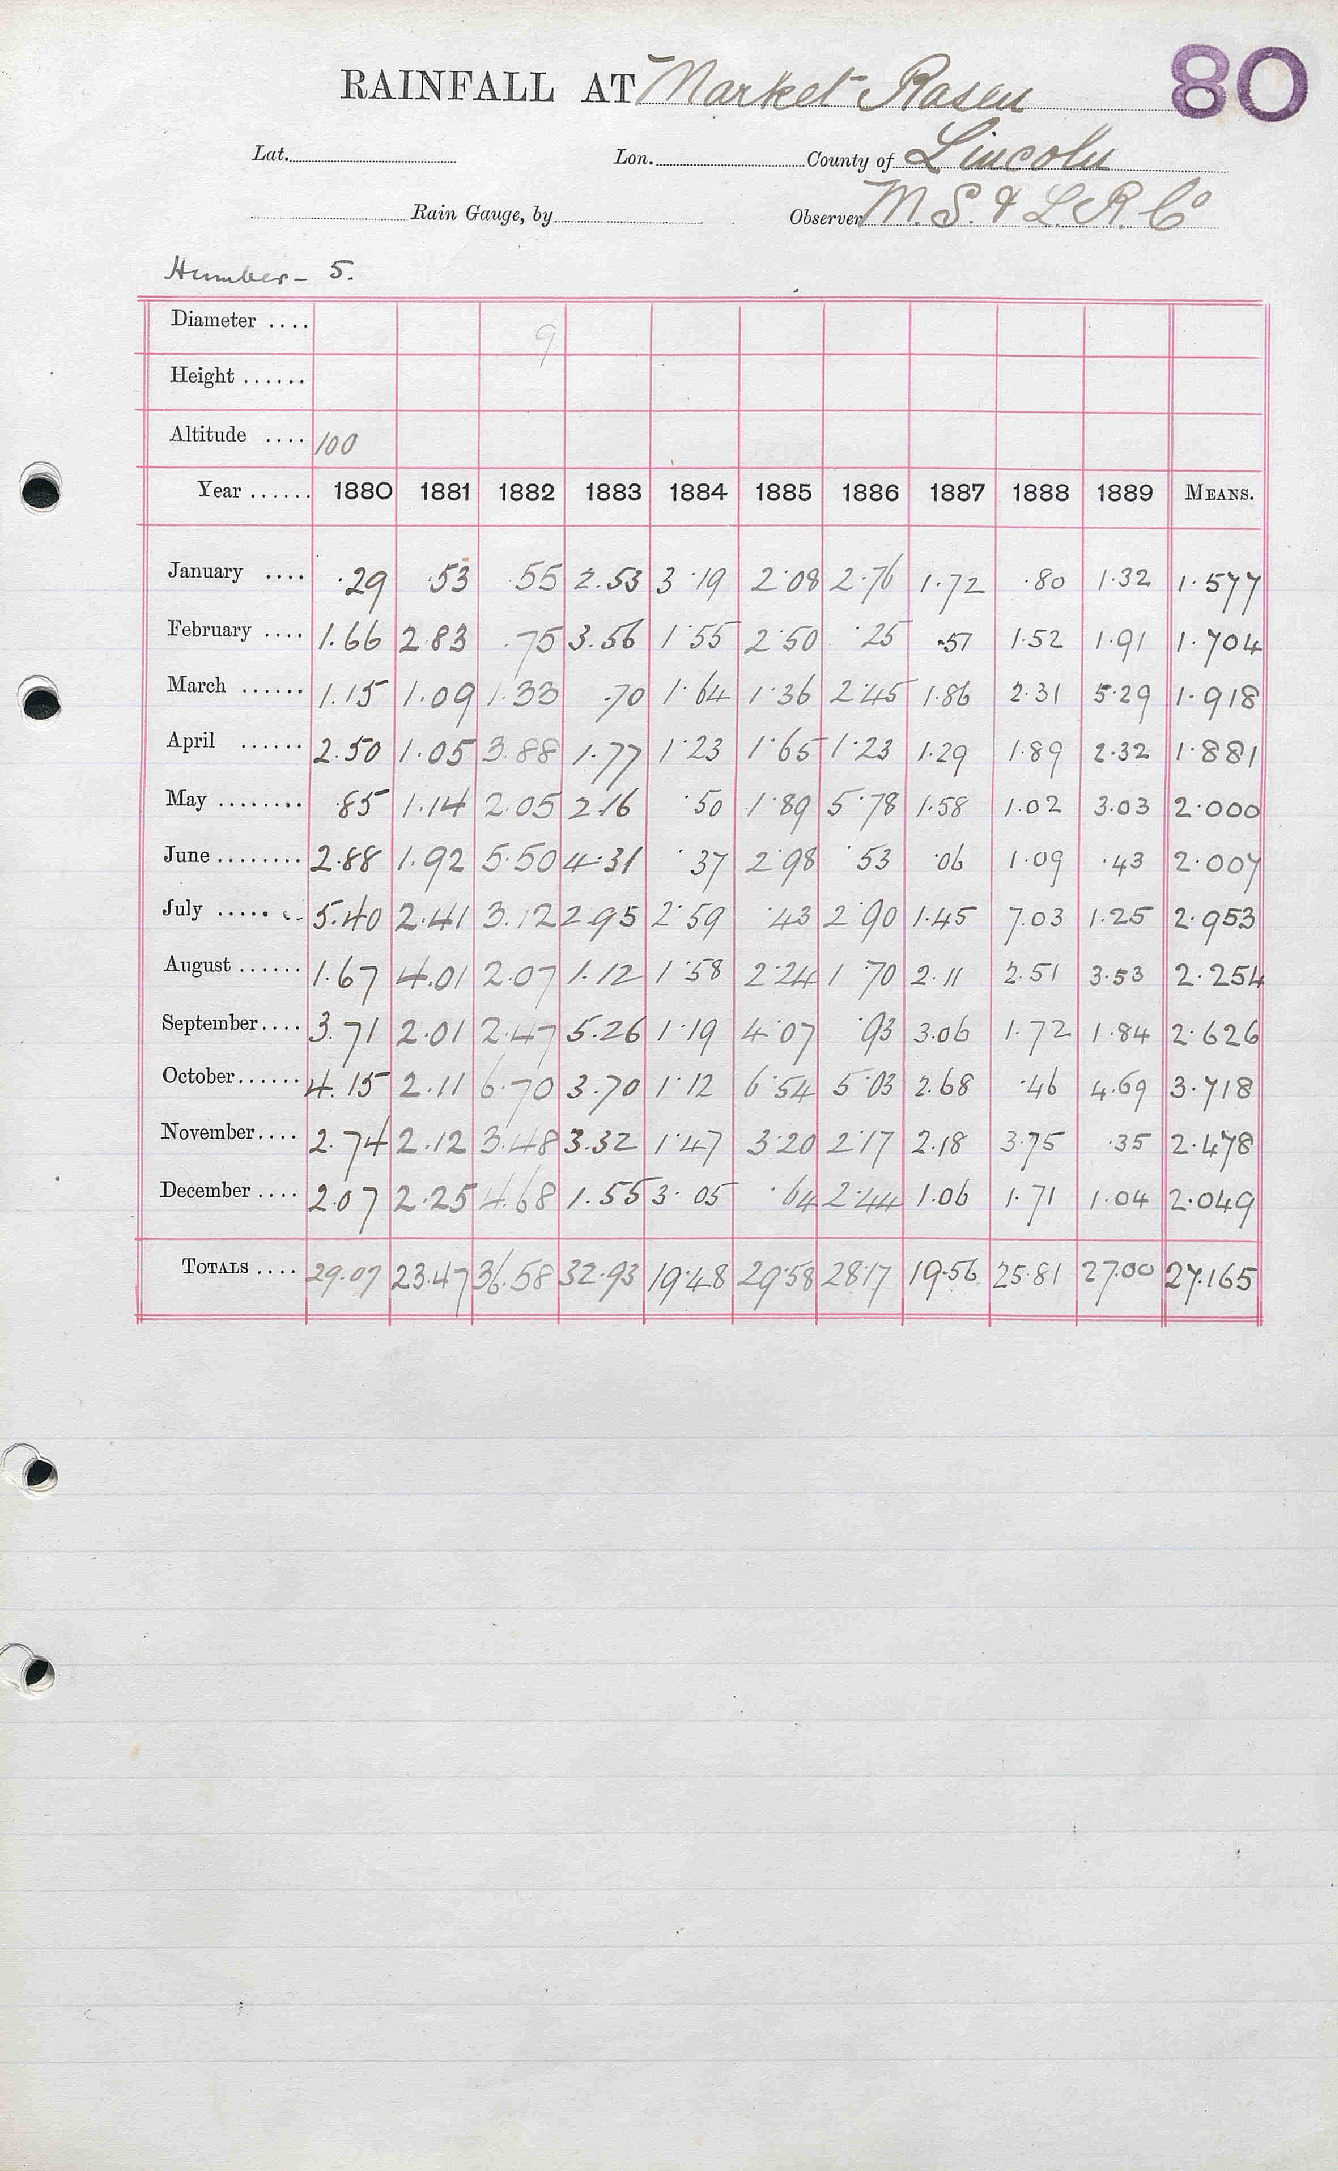 RAINFALL AT Market Rasen 80
Lat. Lon. County of Lincoln
Rain Gauge, by Observer M. S. & L. R. Co
Humber - 5.
Diameter .... 9
Height ......
Altitude .... 100
Year ...... 1880 1881 1882 1883 1884 1885 1886 1887 1888 1889 MEANS.
January .... .29 .53 .55 2.53 3.19 2.08 2.76 1.72 .80 1.32 1.577
February .... 1.66 2.83 .75 3.56 1.55 2.50 .25 .51 1.52 1.91 1.704
March ...... 1.15 1.09 1.33 .70 1.64 1.36 2.45 1.86 2.31 5.29 1.918
April ...... 2.50 1.05 3.88 1.77 1.23 1.65 1.23 1.29 1.89 2.32 1.881
May ........ .85 1.14 2.05 2.16 .50 1.89 5.78 1.58 1.02 3.03 2.000
June ........ 2.88 1.92 5.50 4.31 .37 2.98 .53 .06 1.09 .43 2.007
July ..... 5.40 2.41 3.12 2.95 2.59 .43 2.90 1.45 7.03 1.25 2.953
August ...... 1.67 4.01 2.07 1.12 1.58 2.24 1.70 2.11 2.51 3.53 2.254
September.... 3.71 2.01 2.47 5.26 1.19 4.07 .93 3.06 1.72 1.84 2.626
October...... 4.15 2.11 6.70 3.70 1.12 6.54 5.03 2.68 .46 4.69 3.718
November.... 2.74 2.12 3.48 3.32 1.47 3.20 2.17 2.18 3.75 .35 2.478
December .... 2.07 2.25 4.68 1.55 3.05 .64 2.44 1.06 1.71 1.04 2.049
TOTALS .... 29.07 23.47 36.58 32.93 19.48 29.58 28.17 19.56 25.81 27.00 27.165